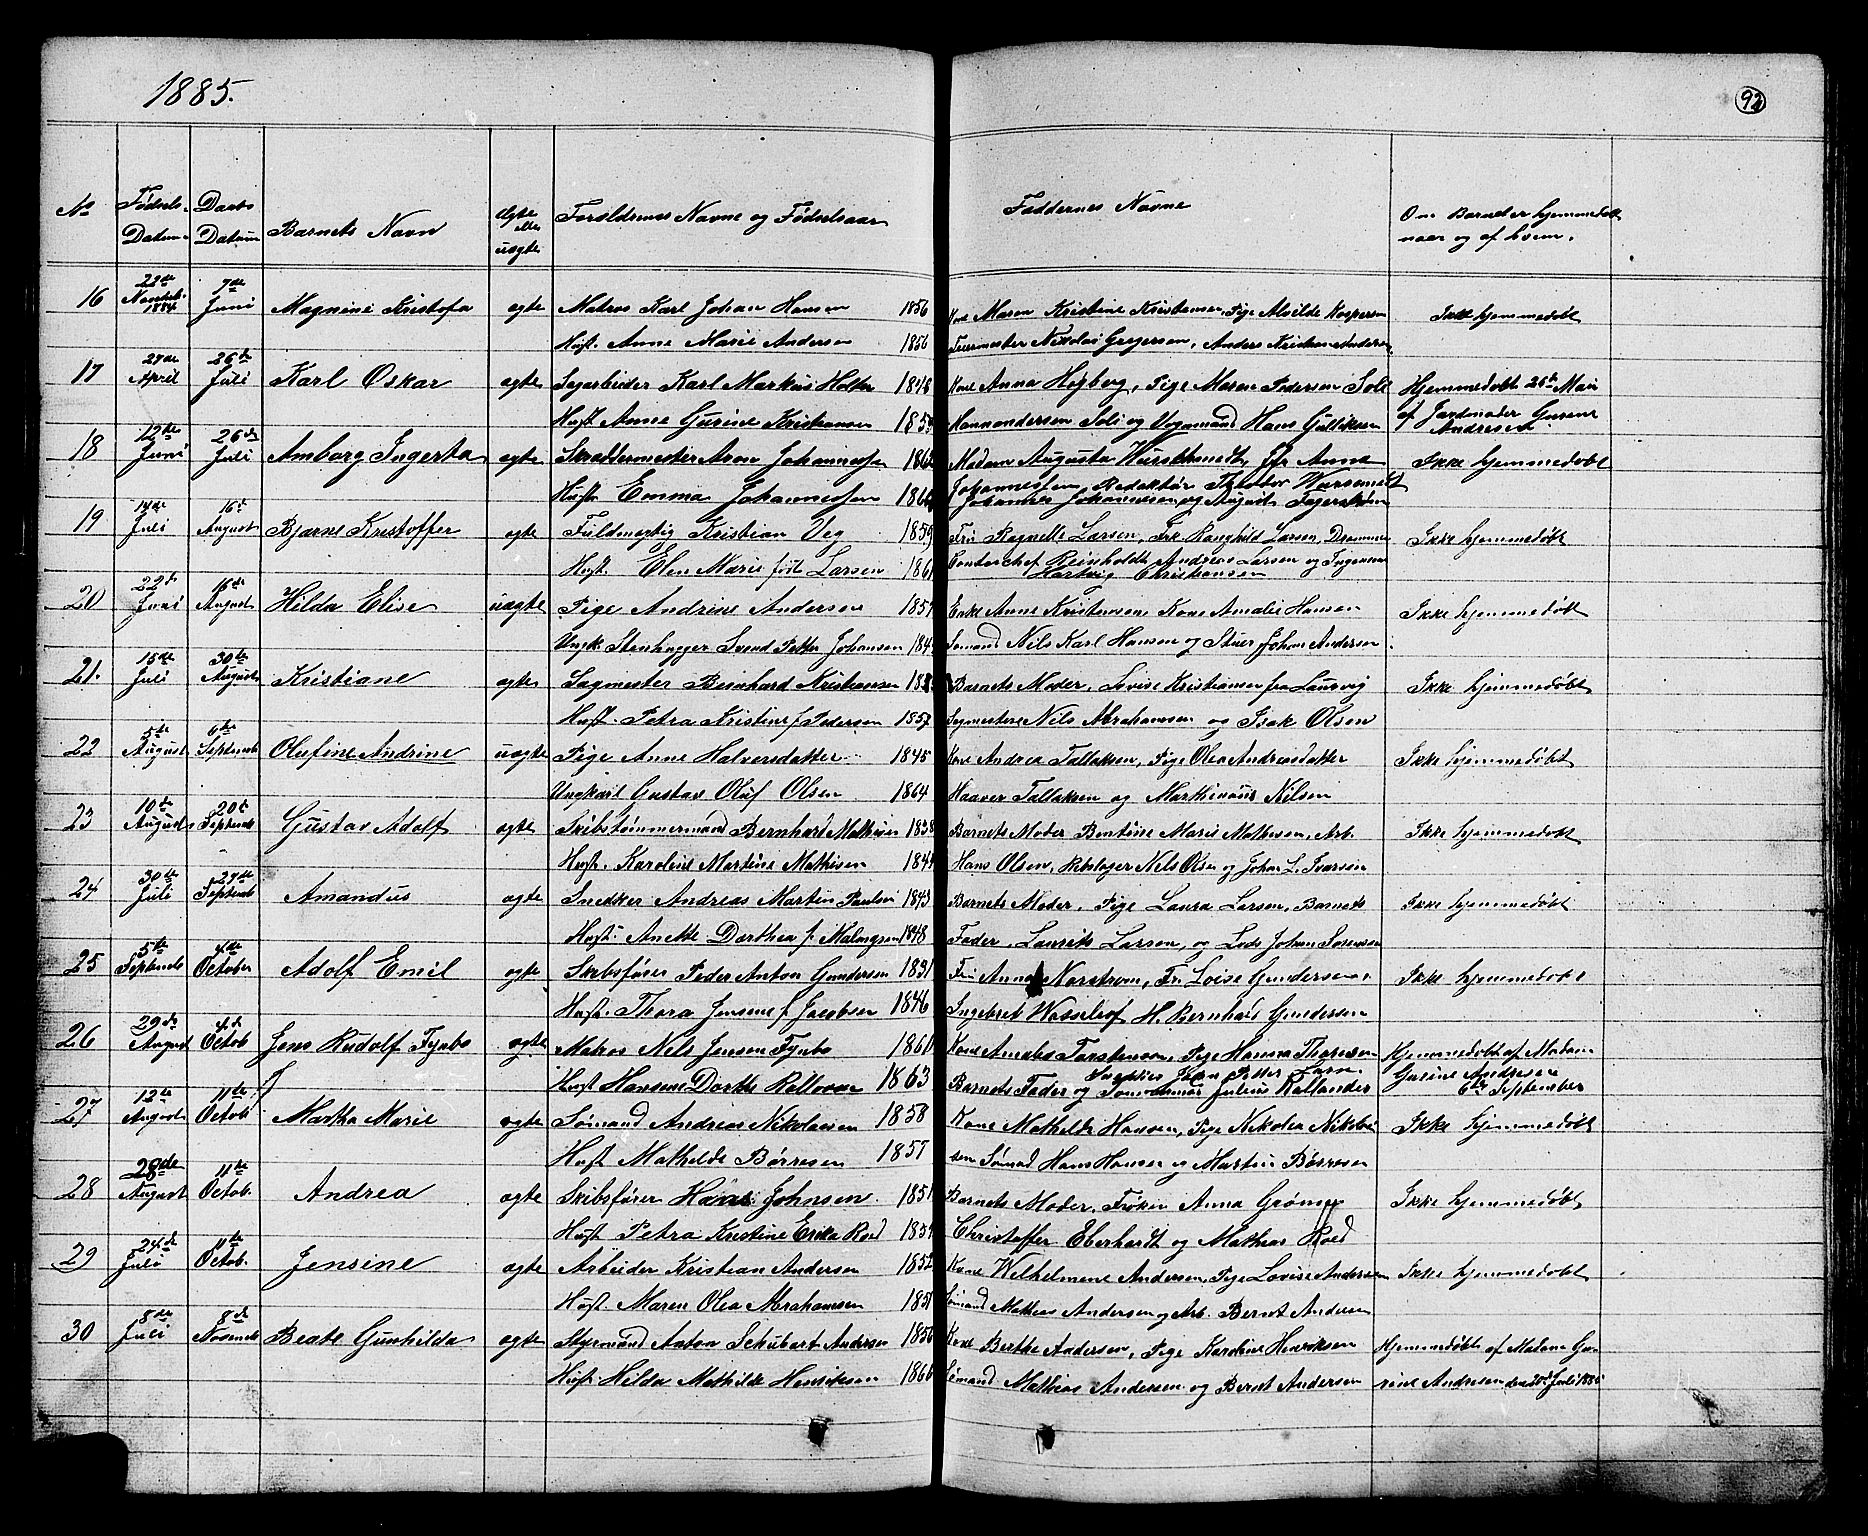 1885.
92
No Fødsels- Datum Daabs Datum Barnets Navn Ægte eller uægte Forældrenes Navne og Fødselsaar Faddernes Navne Om Barnet er hjemmedøbt naar og af hvem.
16 1884 7de Juni Magnine Kristofa ægte Matros Karl Johan Hansen 1856 Kone Maren Kristine Kristensen, Pige Alvilde Kaspersen Ikke hjemmedøbt
Hust. Anne Marie Andersen 1856 Nikolai Gregersen, Anders Kristian Andersen
17 April 26de Juli Karl Oskar ægte Sagarbeider Karl Markus Holter 1848 Kone Anna Høgberg, Pige Maren Pedersen Soli Hjemmedøbt Mai
Hust Anne Gurine Kristiansen Soli og Vognmand Hans Gulliksen af Jordmoder Gurine Andresen
18 12te Juni 26de Juli Amborg Ingerta ægte Skræddermester Aron Johannessen Madam Augusta Jfr Anna Ikke hjemmedøbt
Hust Emma Johannessen Johannessen, Redaktør Theodor
Johannes Johannessen og August
19 14de Juli 16de August Bjarne Kristoffer ægte Fuldmægtig Kristian Veg 1859 Fru Ragnelle Larsen, Frk Ranghild Larsen, Drammen Ikke hjemmedøbt
Hust. Elen Marie født Larsen Reinholdt Andreas Larsen og Ingeniør
Hartvig Christiansen
20 22de Juni 16de August Hilda Elise uægte Pige Andrine Andersen 1857 Enke Anne Kristensen, Kone Amalie Hansen Ikke hjemmedøbt
Ungk. Stenhugger Svend Petter Johansen Sømand Nils Karl Hansen og Stuer Johan Andersen
21. 15de Juli 30te August Kristiane ægte Sagmester Beinhard Kristiansen Barnets Moder, Lovise Kristiansen fra Laurvig Ikke hjemmedøbt
Hust. Petra Kristine f Pedersen 1857 Sagmestere Nils Abrahamsen og Isak Olsen
22 5te August 6te Septemb Olufine Andrine uægte Pige Anne Halversdatter 1845 Kone Andrea Tallaksen, Pige Olea Andreasdatter Ikke hjemmedøbt
Ungkarl Gustav Oluf Olsen 1864 Haaver Tallaksen og Marthinius Nilsen
23 10de August 20de Septemb Gustav Adolf ægte Skibstømmermand Bernhard Mathisen 1838 Barnets Moder Bentine Marie Mathisen, Arb. Ikke hjemmedøbt
Hust. Karoline Martine Mathisen 1844 Hans Olsen, Rebslager Nils Olsen og Johan L. Ivarsen
24 30te Juli 27de Septemb Amandus ægte Snedker Andreas Martin Paulsen 1843 Barnets Moder, Pige Laura Larsen, Barnets Ikke hjemmedøbt
Hust. Anette Dorthea f. Malmgren 1848 Fader, Laurits Larsen, og Lods Johan Sørensen
25 5te Septemb 4de October Adolf Emil ægte Skibsfører Peder Anton Gundersen 1831 Fru Anna Norstrøm, Fr. Loise Gundersen, Ikke hjemmedøbt
Hust. Thora Jensine f Jacobsen 1846 Ingebret H. Bernhard Gundersen
26 29de August 4de Octob Jens Rudolf Fynbo ægte Matros Nils Jensen Fynbo 1860 Kone Amalie Torstensen, Pige Hanna Thoresen Hjemmedøbt af Madam
Hust Hansine Dorthe Rallovar 1863 Barnets Fader og Julius Rallander Gurine Andresen 6te September
27 12te August 11te Octob Martha Marie ægte Sømand Andreas Nikolaisen 1858 Kone Mathilde Hansen, Pige Nikolea Nikolai Ikke hjemmedøbt
Hust Mathilde Børresen 1857 sen Sømand Hans Hansen og Martin Børresen
28 28de August 11te Octob. Andrea ægte Skibsfører Hans Johnsen 1851 Barnets Moder, Frøken Anna Grøning Ikke hjemmedøbt
Hust Petra Kristine Erika Roed 1854 Christoffer Eberhardt og Mathias Roed
29 24de Juli 11te Octob. Jensine ægte Arbeider Kristian Andersen 1852 Kone Wilhelmine Andersen, Pige Lovise Andersen Ikke hjemmedøbt
Hust. Maren Olea Abrahamsen 1851 Sømand Mathias Andersen og Arb. Bernt Andersen
30 8de Juli 8de Novemb Beate Gunhilda ægte Styrmand Anton Schubart Andersen 1856 Kone Berthe Andersen, Pige Karoline Henriksen Hjemmedøbt af Madam Gu-
Hust. Hilda Mathilde Henriksen 1860 Sømand Mathias Andersen og Bernt Andersen rine Andresen den 20de Juli 1885